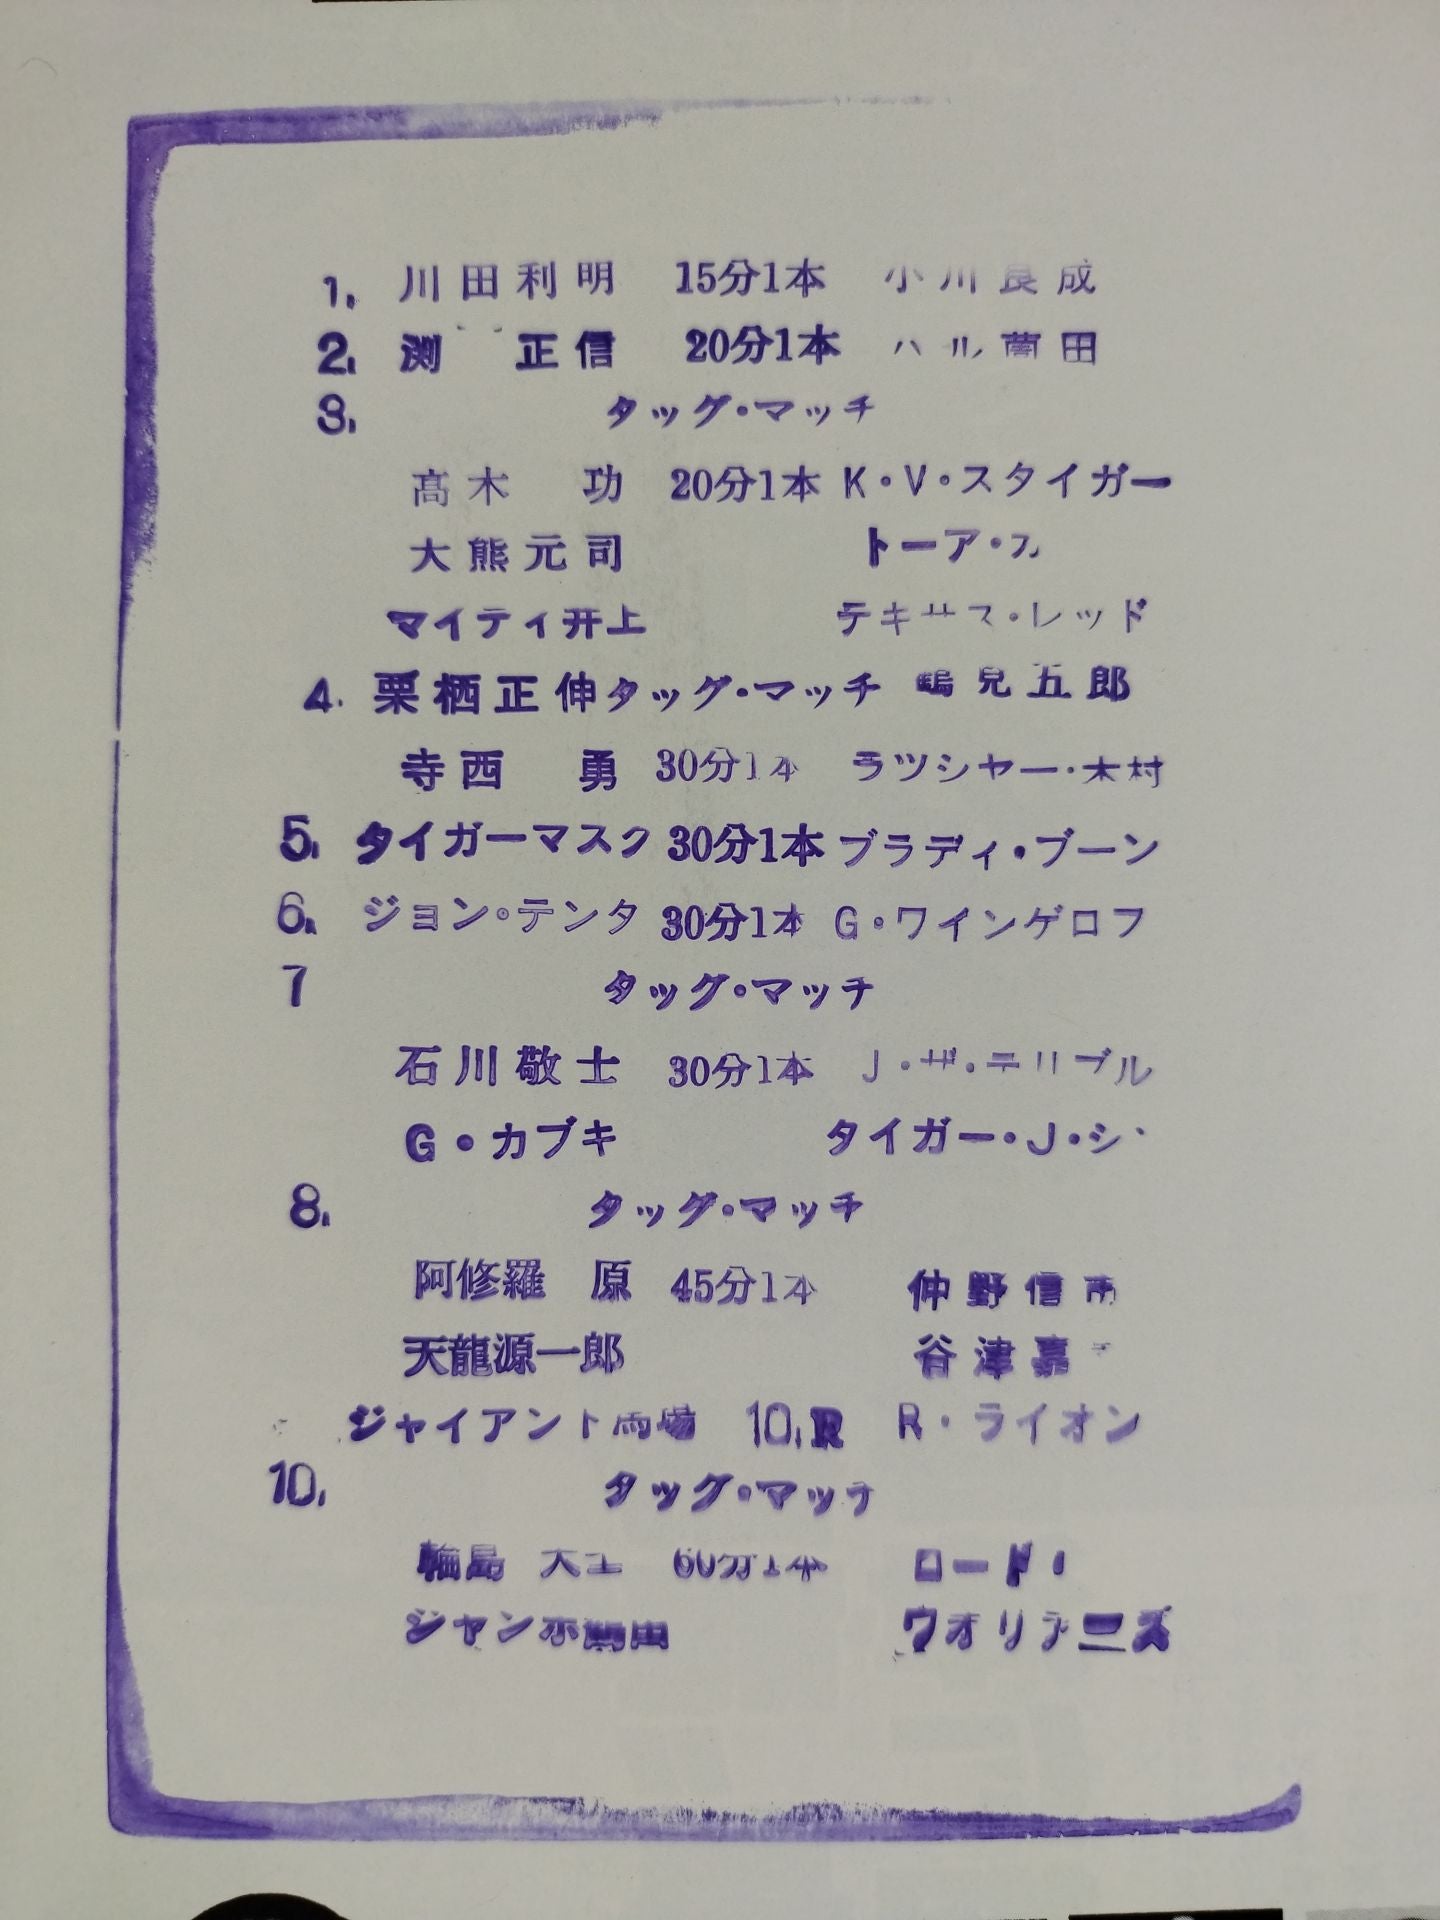 1. 川田利明 15分1本 小川良成
2. 渕 正信 20分1本 ハル薗田
3. タッグ・マッチ
高木 功 20分1本 K・V・スタイガー
大熊元司 トーア・カ
マイティ井上 テキサス・レッド
4. 栗栖正伸 タッグ・マッチ 鶴見五郎
寺西 勇 30分1本 ラツシヤー・木村
5. タイガーマスク 30分1本 ブラディ・ブーン
6. ジョン・テンタ 30分1本 G・ワインゲロフ
7 タッグ・マッチ
石川敬士 30分1本 J・ザ・テリブル
G・カブキ タイガー・J・シン
8. タッグ・マッチ
阿修羅 原 45分1本 仲野信市
天龍源一郎 谷津嘉
ジャイアント馬場 10.R R・ライオン
10. タッグ・マッチ
輪島 大士 60分1本 ロード・
ジャンボ鶴田 ウオリアーズ